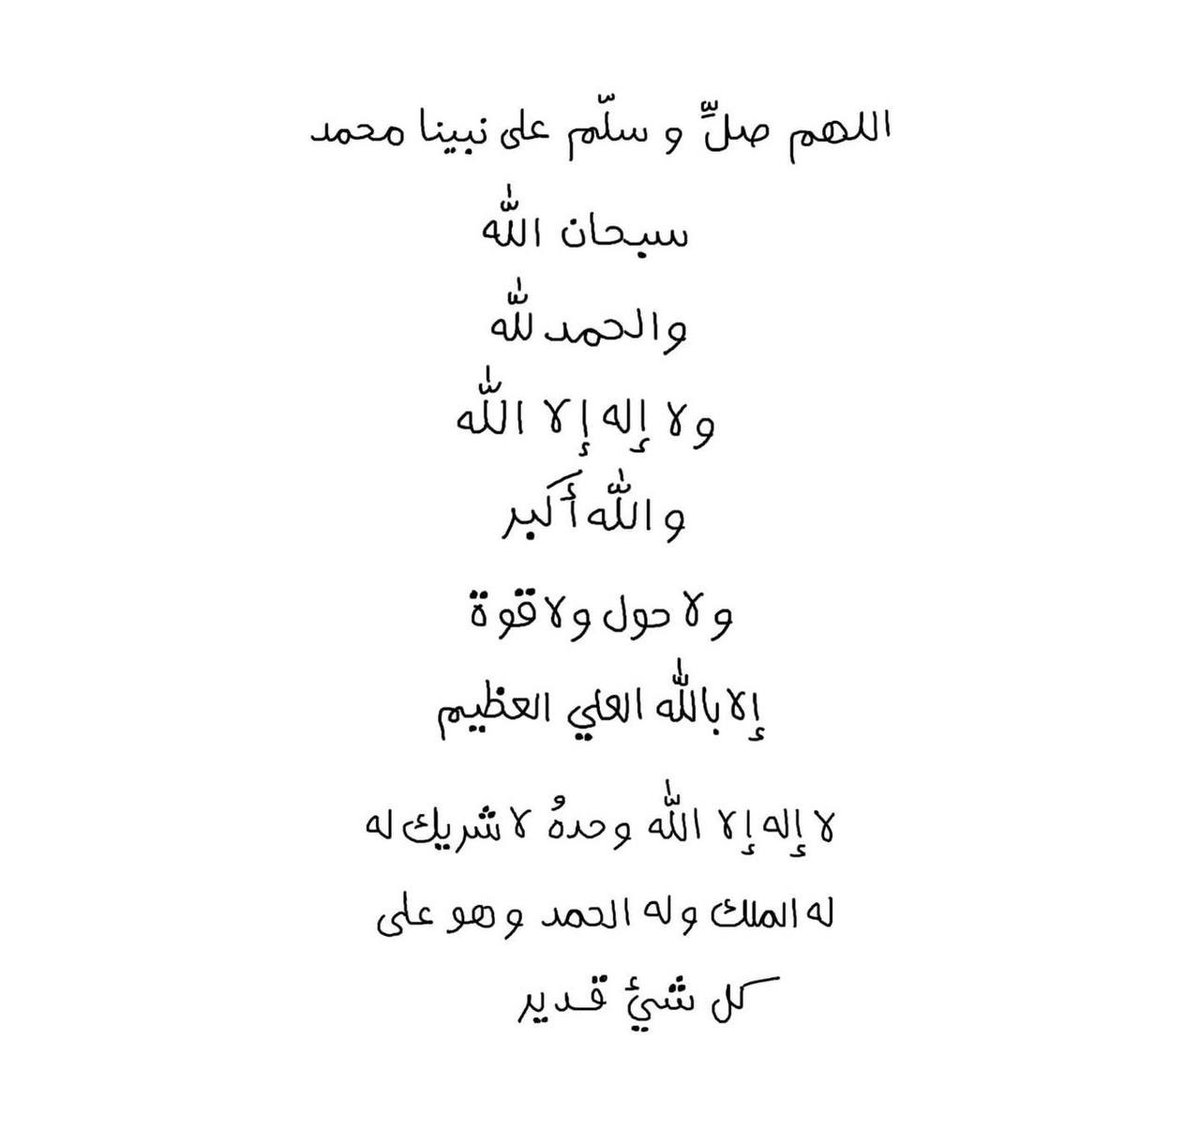 اللهم صلِّ و سلّم على نبينا محمد
سبحان الله
والحمد لله
ولا إله إلا الله
والله أكبر
ولا حول ولا قوة
إلا بالله العلي العظيم
لا إله إلا الله وحدهُ لا شريك له
له الملك وله الحمد وهو على
كل شيئ قدير